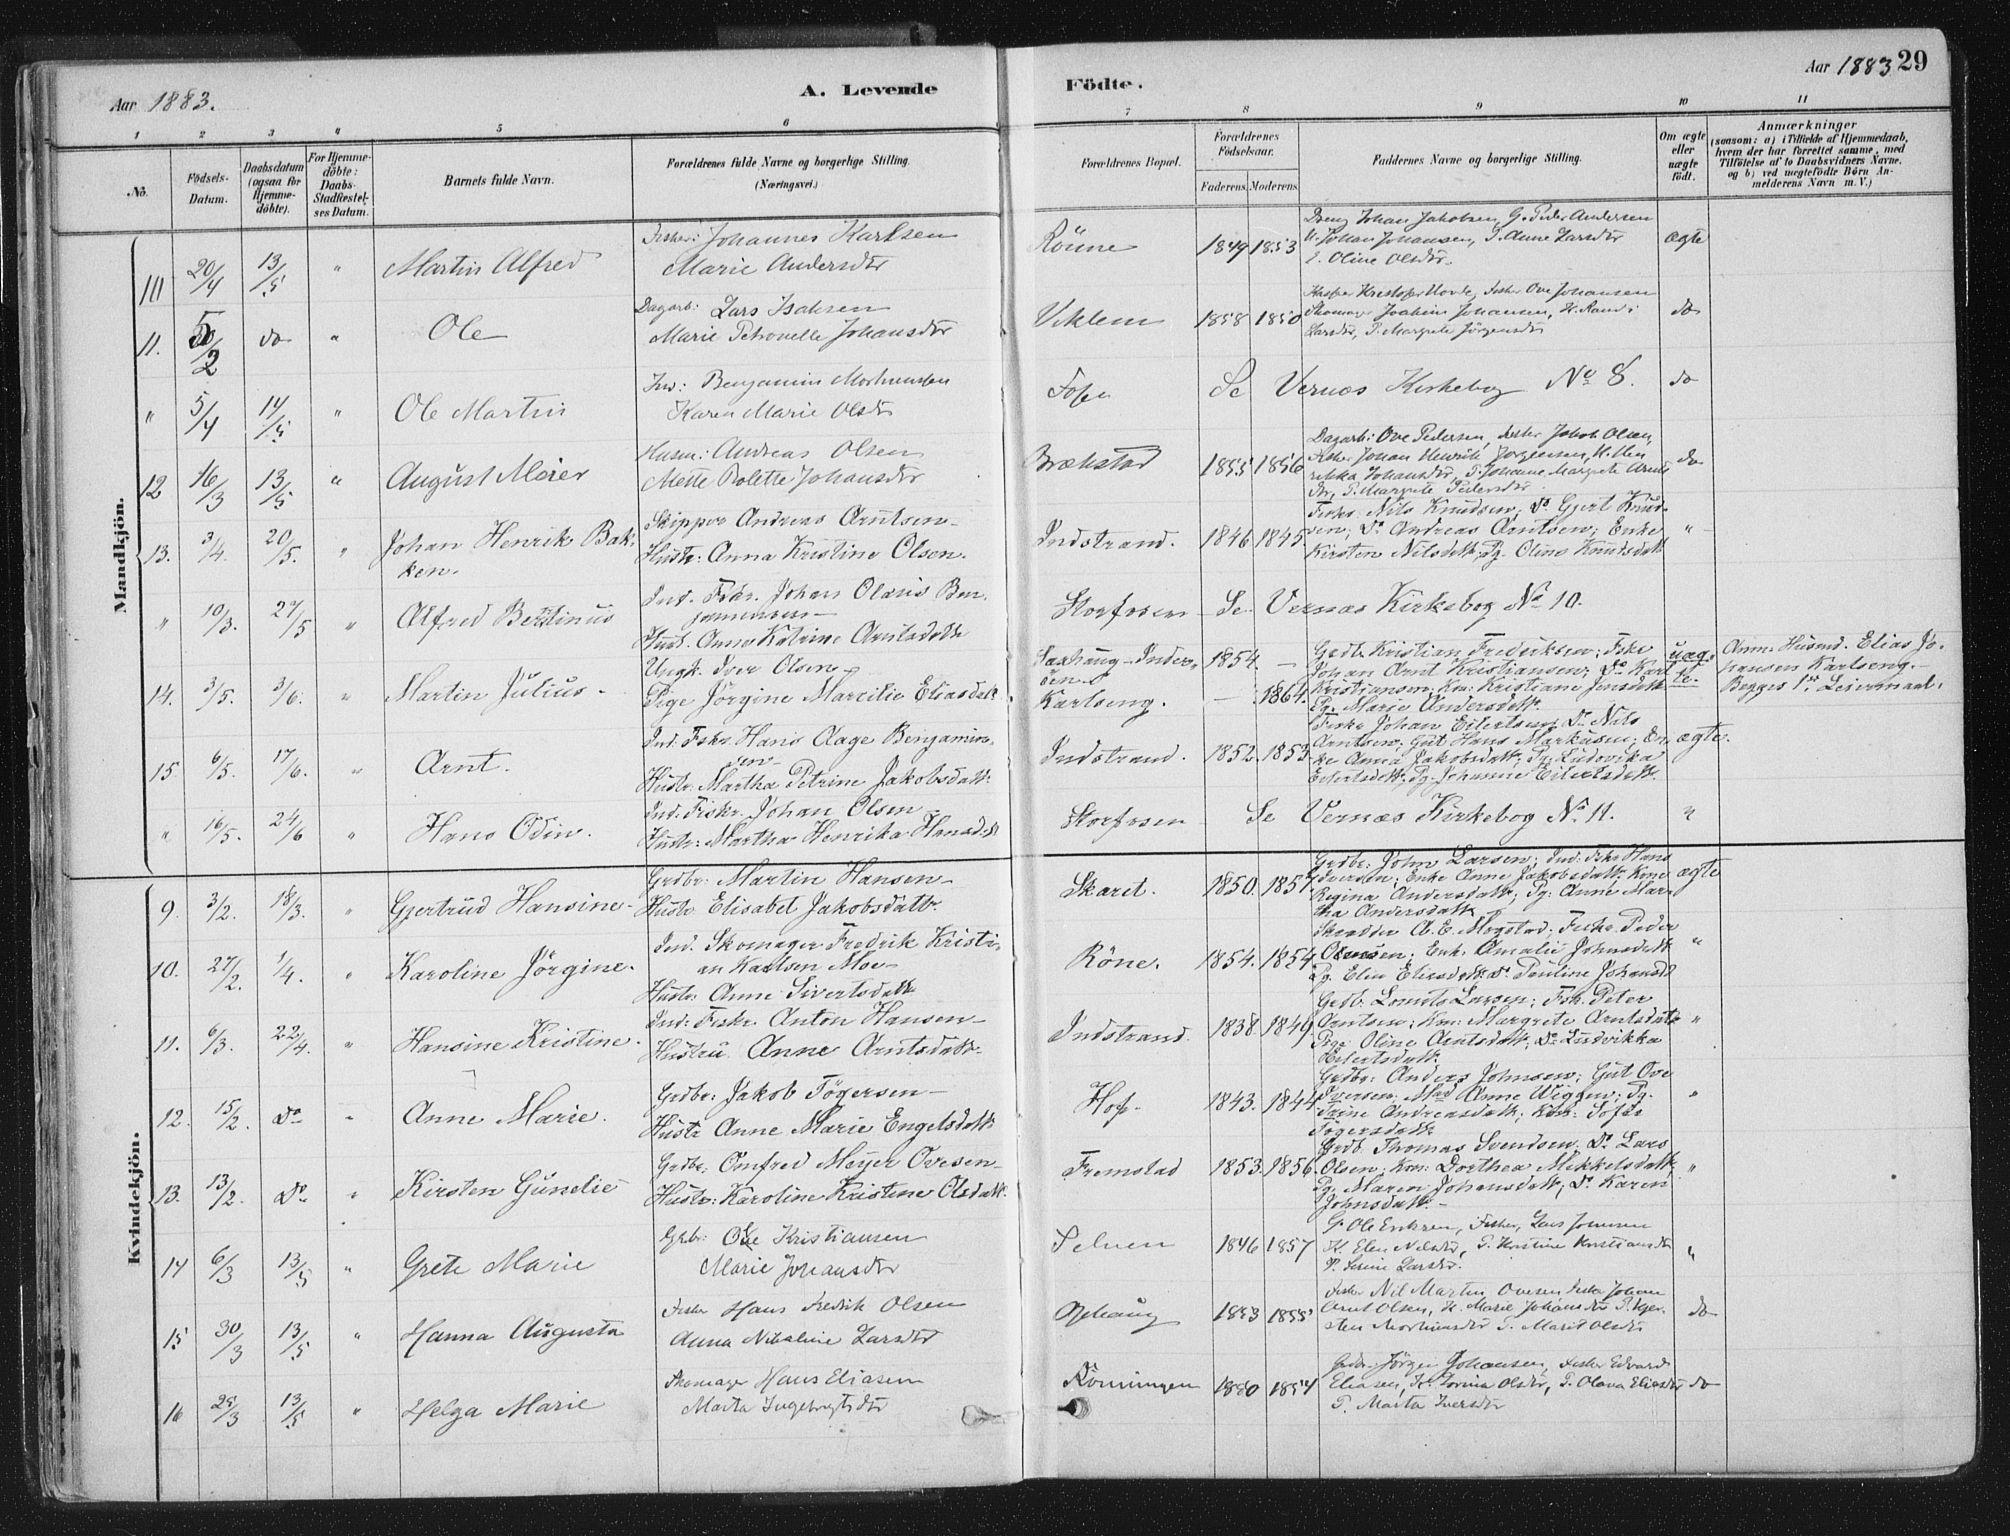 Aar 1883.
A. Levende
Födte.
Aar 1883 29
1 2 3 4 5 6 7 8 9 10 11
No.
Födsels-Datum.
Daabsdatum (ogsaa for Hjemme-döbte).
For Hjemme-döbte: Daabs-Stadfæstel-ses Datum.
Barnets fulde Navn.
Forældrenes fulde Navne og borgerlige Stilling.
(Næringsvei.)
Forældrenes Bopæl.
Forældrenes Födselsaar.
Faderens. Moderens.
Faddernes Navne og borgerlige Stilling.
Om ægte eller uægte födt.
Anmærkninger
(saasom: a) i Tilfælde af Hjemmedaab, hvem der har forrettet samme, med Tilföielse af to Daabsvidners Navne, og b) ved uægtefödte Börn An-melderens Navn m. V.)
Mandkjön.
10 20/4 13/5 " Martin Alfred
Fisker: Johannes Karlsen
Marie Andersdtr
Rönne 1849 1853
Dreng Johan Jakobsen, G. Peder Andersen
U. Johan Johansen, P. Anne Larsdtr
P. Oline Olsdtr.
ægte
11. 5/2 do " Ole
Dagarb: Lars Isaksen
Marie Petronelle Johansdtr
Viklem 1858 1850
Kristofer Hovde, Fisker Ove Johansen
Skomager Joakim Johansen, K. Randi
Larsdtr, P. Margrete Jörgensdtr
do
" 5/4 14/5 " Ole Martin
Ind: Benjamin
Karen Marie Olsdtr
Fosen Se Vernæs Kirkebog No 8. do
12 16/3 13/5 " August Meier
Husm: Andreas Olsen
Mette Rolette Johansdtr
Brækstad 1855 1856
Dagarb: Ove Pedersen, Fisker Jakob Olsen,
Fisker Johan Henrik Jörgensen, K. Hen
rikka Johansdtr, P. Johanne Margrete Arnts
dtr, P. Margrete Pedersdtr
do
13. 3/4. 20/5. " Johan Henrik Bak-
ken.
Skipper Andreas Arntsen-
Hustr: Anna Kristine Olsen.
Indstrand. 1846 1845
Fisker Nils Knudsen; Do Gjert Knud-
sen; Do Andreas Arntsen; Enke
Kirsten Nilsdatt; Pg. Oline Knudsdatt
"
" 10/3. 27/5 " Alfred Bertinus
Ind. Fiskr. Johan Olaus Ben-
jaminsen-
Hust. Anne Katrine Arntsdatte
Storfosen - Se Vernæs Kirkebog No 10.
14. 3/5. 3/6. " Martin Julius-
Ungk. Iver Olsen-
Pige Jörgine Marcilie Eliasdatt
Saxhaug-Inder-
öen-
Karlseng.
1854. -
- 1864.
Gadbr. Kristian Frederiksen; Fiskr
Johan Arnt Kristiansen; Do Karl
Kristiansen; Kon: Kristiane Jensdatt
Pg. Marie Andersdatt.
uæg-
te.
Anm. Husmd. Elias Jo-
hansen Karlseng.-
Begges 1ste Leiermaal.
15. 6/5. 17/6. " Arnt.
Ind. Fiskr. Hans Aage Benjamin-
sen-
Hustr. Martha Petrine Jakobsdatt.
Indstrand. 1852. 1853.
Fiskr Johan Eilertsen; Do Nils
Arntsen; Gut Hans Markusen; En-
ke Anna Jakobsdatt; Pg. Ludovika
Eilertsdatt; Pg. Johanne Eilertsdatt.
ægte.
" 16/5. 24/6 " Hans Odin.
Ind. Fiskr. Johan Olsen-
Hustr: Martha Henrika Hansd.
Storfosen Se Vernæs Kirkebog No 11. "
Kvindekjön.
9. 3/2. 18/3. " Gjertrud Hansine-
Grdbr: Martin Hansen-
Hustr Elisabet Jakobsdatt.
Skaret. 1850. 1857.
Grdbr: John Larsen; Ind. Fskr Hans
Iversen; Enke Anne Jakobsdatt; Kone
Regina Andersdatt; Pg. Anne Mar-
tha Andersdatt
ægte
10. 27/2. 1/4. " Karoline Jörgine.
Ind. Skomager Fredrik Kristi-
an Karlsen Moe-
Hustr: Anne Sivertsdatt
Röne. 1854. 1854.
Skrædder A. E. Mogstad; Fiskr. Peder
Olsen; Enk. Amalie Johnsdatt
Pg. Elen Eliasdatt; Do Pauline Johansd
"
11. 6/3. 22/4. " Hansine Kristine.
Ind: Fiskr. Anton Hansen-
Hustru Anne Arntsdatt.
Indstrand. 1838. 1849.
Grdb. Lornts Larsen; Fsk. Peter
Arntsen; Kon: Margrete Arntsdatt
Pige Oline Arntsdatt; Do Ludvikka
Eilertsdatt.
"
12. 15/2. Do " Anne Marie.
Grdbr: Jakob Tögersen-
Hustr Anne Marie Engelsdatt
Hof- 1843. 1844.
Grdbr: Anders Johnsen; Gut Ove
Iversen; Mad Anne Wiggen; Pg.
Trine Andreasdatt; Kon: Sofie
Tögersdatt
"
13. 13/2. Do " Kirsten Gunelie
Grdbr: Omfred Meyer Ovesen-
Hustr: Karoline Kristine Olsdatt.
Fremstad 1853. 1856.
Grdb. Thomas Svendsen; Do Lars
Olsen; Kon: Dorthea Mikkelsdatt
Pg. Maren Johansdatt; Do Karen
Johnsdatt-
"
14 6/3 13/5 " Grete Marie
Grbr: Ole Kristiansen
Marie Johansdtr
Selven 1846 1857
G. Ole Eriksen, Fisker, Lars Jonsen
K. Elen Nilsdtr, P. Kristine Kristiansdtr
P. Serine Larsdtr.
"
15 30/3 13/5 " Hanna Augusta
Fisker Hans Fredrik Olsen
Anna Nikoline Larsdtr
Ophaug 1853 1855
Fisker Nil Martin Ovesen Fisker Johan
Arnt Olsen, K. Marie Johansdtr P. Kjer-
sten P. Marit Olsdtr
do
16 25/3 13/5 " Helga Marie
Skomager Hans Eliasen
Marta Ingebrigtsdtr
Rönningen 1850 1854
Grdbr. Jörgen Johansen, Fisker Edvard
Eliasen, K. Olsdtr, P. Olava Eliasdtr
P. Marta Iversdtr
do